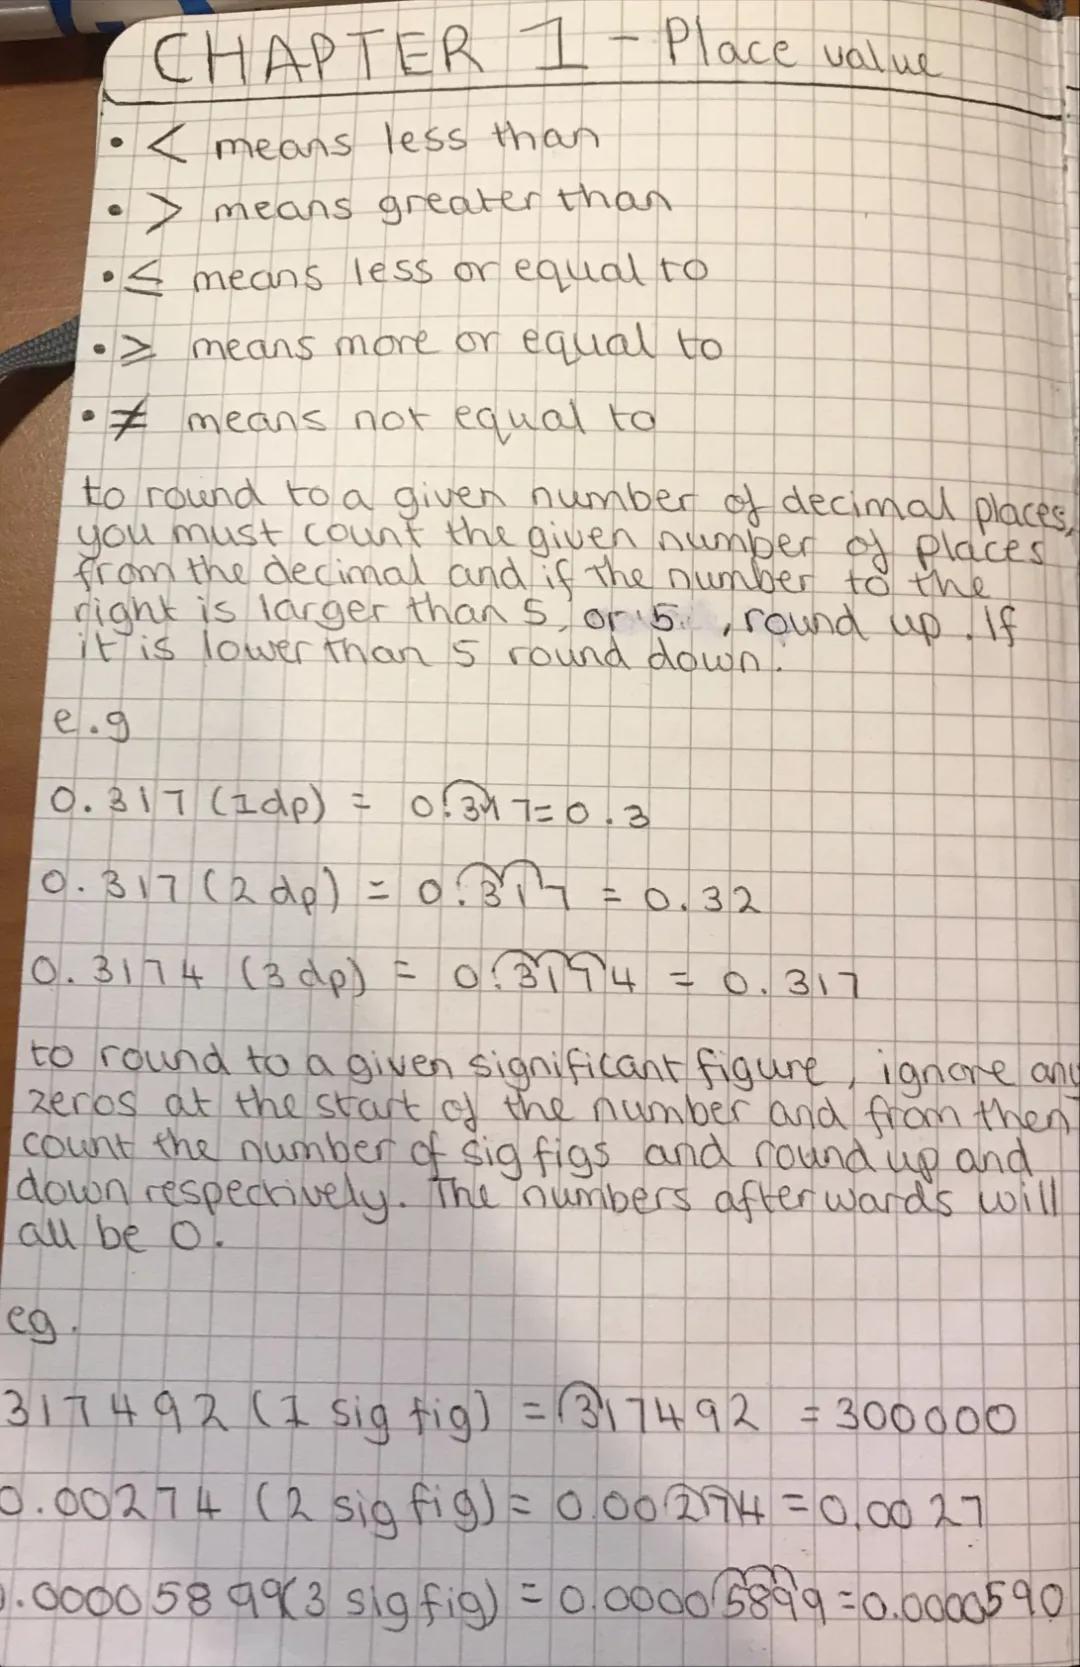 CHAPTER 1 - Place value
• < means less than
• > means greater than
• ≤ means less or equal to
• ≥ means more or equal to
• ≠ means not equal to
to round to a given number of decimal places,
you must count the given number of places
from the decimal and if the number to the
right is larger than 5, or 5 , round up. If
it is lower than 5 round down.
e.g
0.317 (1dp) = 0.317 = 0.3
0.317 (2 dp) = 0.317 = 0.32
0.3174 (3 dp) = 0.3174 = 0.317
to round to a given significant figure, ignore any
zeros at the start of the number and from then
count the number of sig figs and round up and
down respectively. The numbers afterwards will
all be 0.
eg.
317492 (1 sig fig) = 317492 = 300000
0.00274 (2 sig fig) = 0.00274 = 0.0027
0.00005899 (3 sig fig) = 0.00005899 = 0.0000590